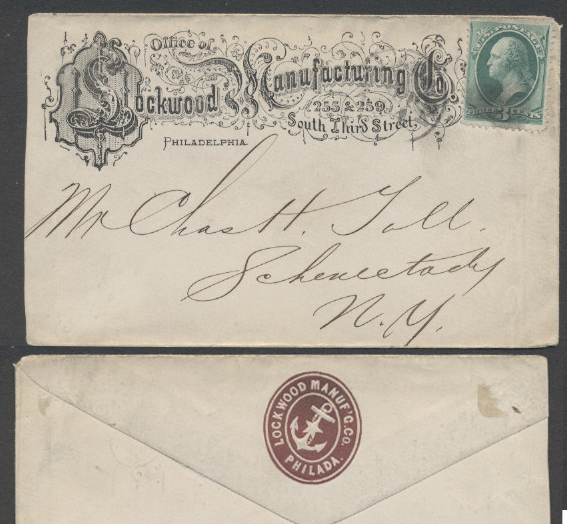 Office of
Lockwood Manufacturing Co.
255 & 259
South Third Street.
PHILADELPHIA.
U.S. POSTAGE
THREE CENTS
3
Mr Chas H. Toll.
Schenectady
N.Y.
LOCKWOOD MANUF'G. CO.
PHILADA.